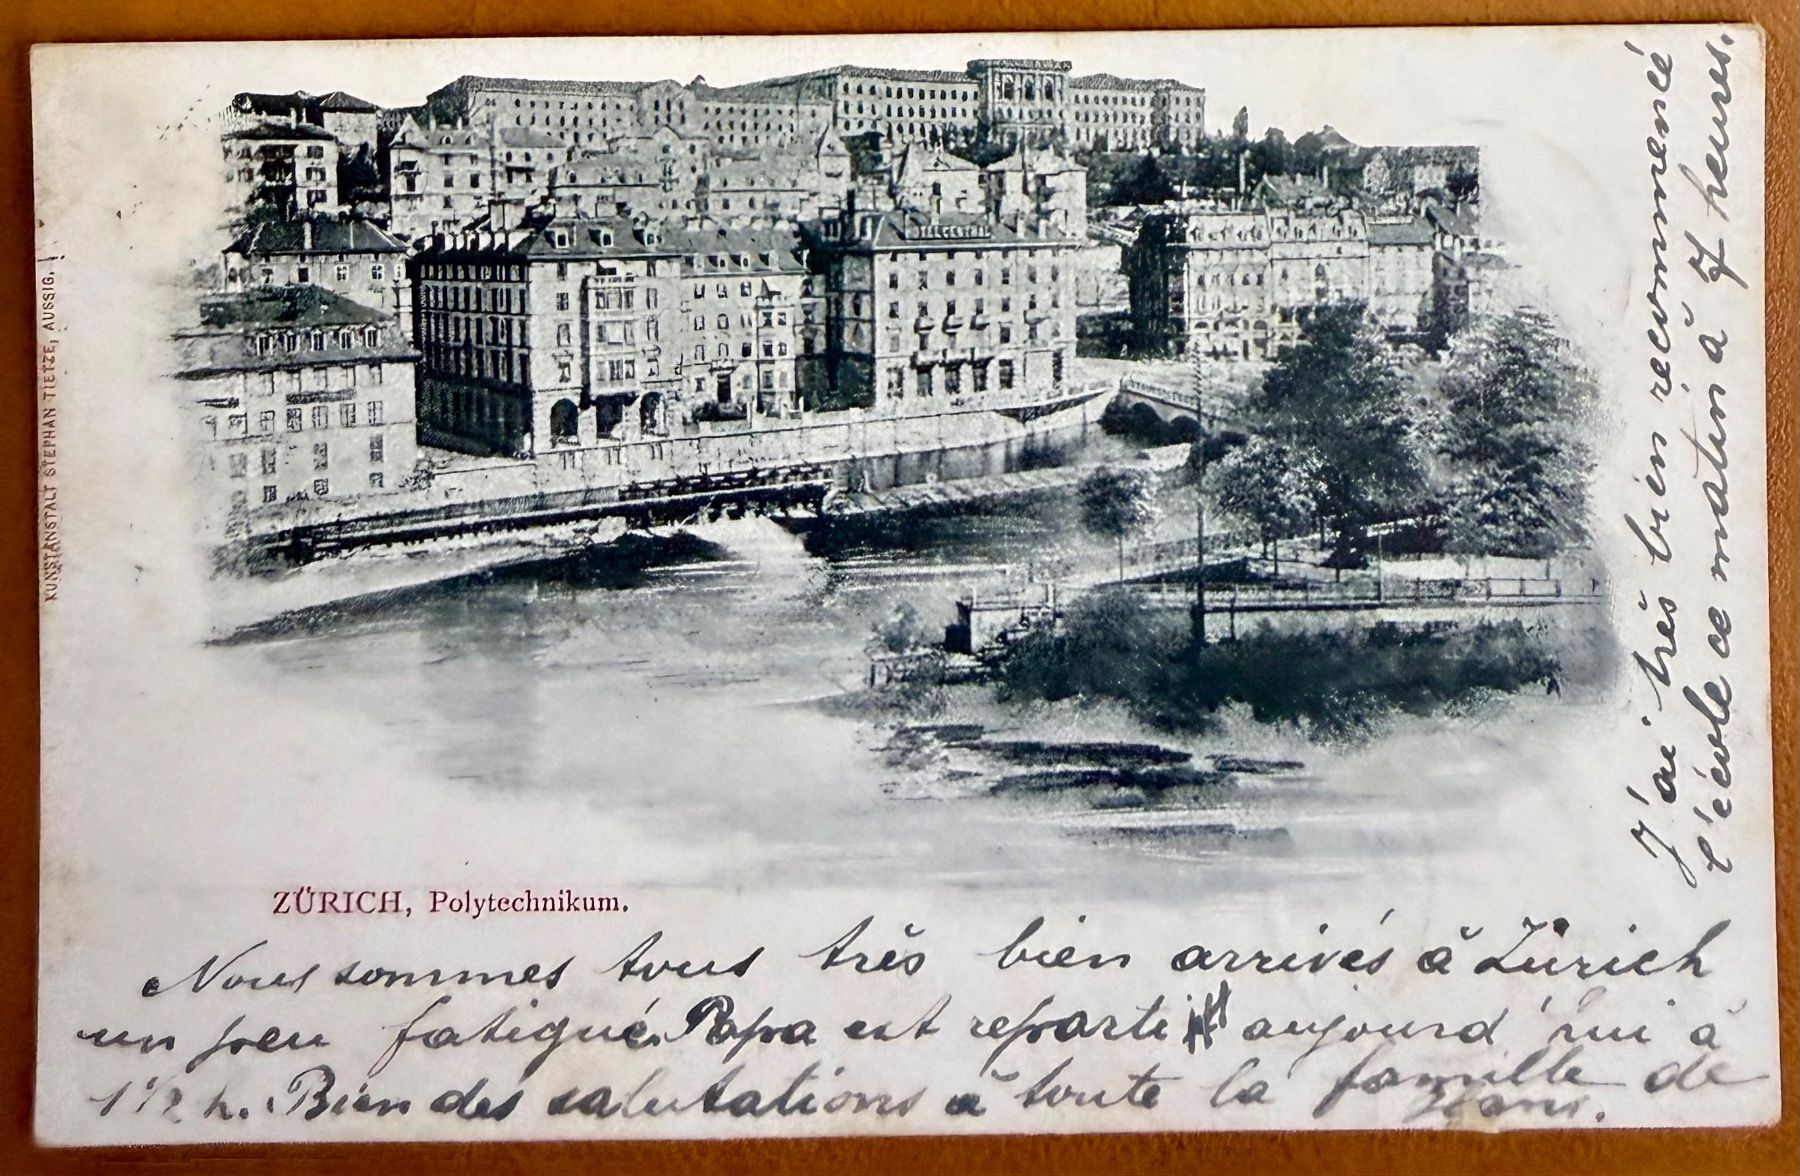 KUNSTANSTALT STEPHAN TIETZE, AUSSIG.
ZÜRICH, Polytechnikum.
Nous sommes tous très bien arrivés à Zürich
un peu fatigué. Papa est reparti aujourd'hui à
1 1/2 h. Bien des salutations à toute la famille de
Hans.
J'ai très bien recommencé
l'école ce matin à 7 heures.